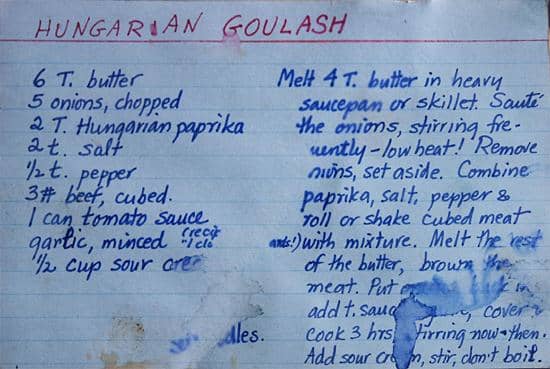 HUNGARIAN GOULASH
6 T. butter
5 onions, chopped
2 T. Hungarian paprika
2 t. salt
1/2 t. pepper
3# beef, cubed.
1 can tomato sauce
garlic, minced
1/2 cup sour
Melt 4 T. butter in heavy
saucepan or skillet. Sauté
the onions, stirring fre-
uently - low heat! Remove
set aside. Combine
paprika, salt, pepper &
roll or shake cubed meat
with mixture. Melt the rest
of the butter, brown the
meat. Put in
add t. cover
cook 3 hrs now & then.
Add sour stir, don't boil.